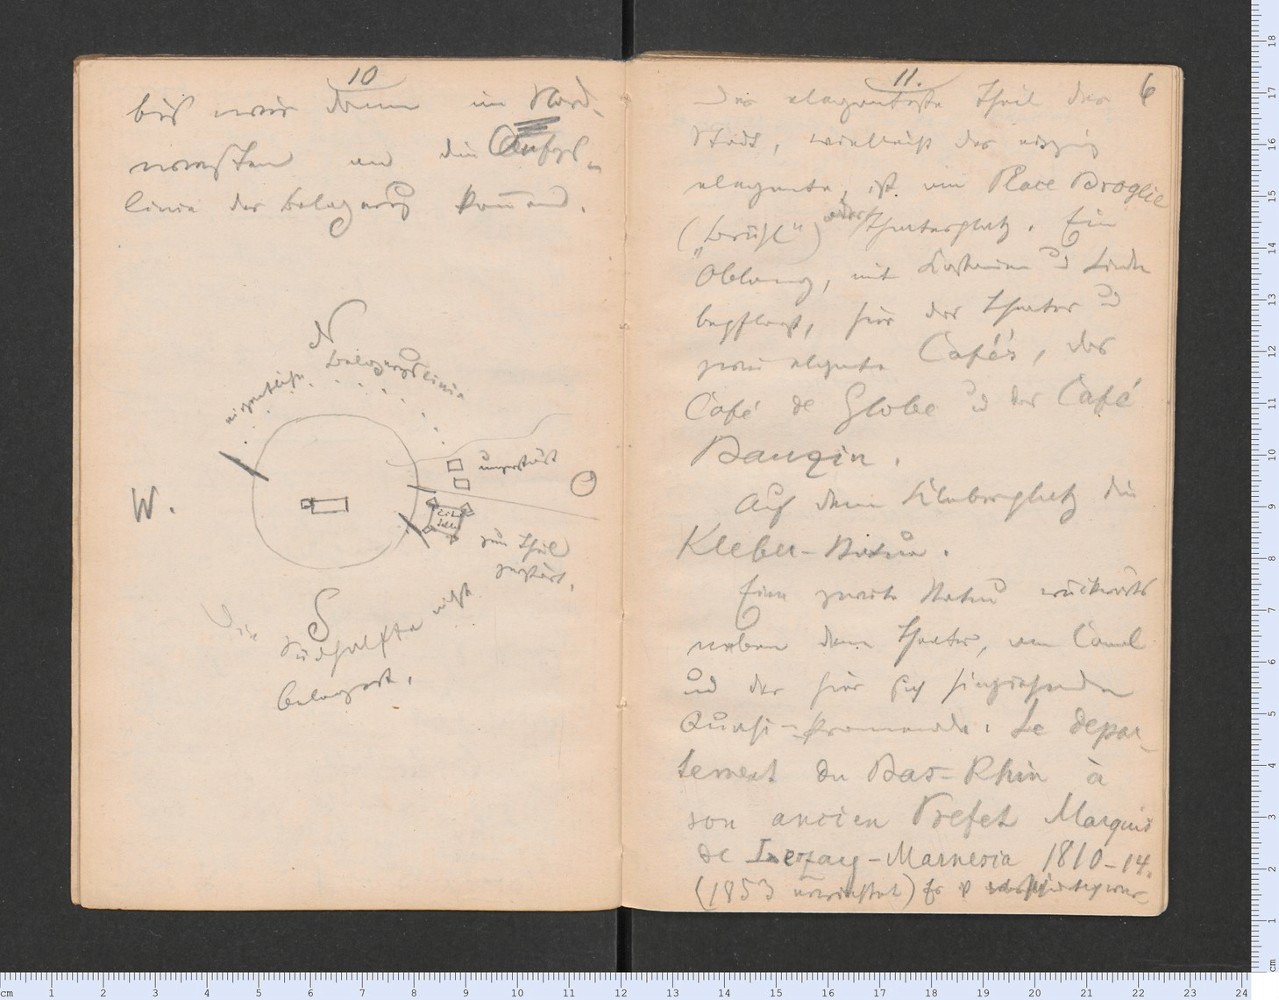 10
bis wir dann im Nord-
westen an die Angriffs-
linie der Belagerung kommen.
N
eigentliche Belagerungslinie
W.
unzerstört
O
zum Theil
zerstört.
S
Die Südhälfte nicht
belagert.
11.
6
Der eleganteste Theil der
Stadt, vielleicht der einzig
elegante, ist am Place Broglie
(„Brühl“) oder Theaterplatz. Ein
Oblong, mit Kastanien und Linden
bepflanzt, hier das Theater und
zwei elegante Cafés, das
Café de Globe und das Café
Bauzin.
Auf dem Kleberplatz die
Kleber-Statue.
Eine zweite Statue rückwärts
neben dem Theater, am Canal
und der hier sich hinziehenden
Quasi-Promenade. Le depar-
tement du Bas-Rhin à
son ancien Prefet Marquis
de Lezay-Marnesia 1810-14.
(1853 errichtet) Es